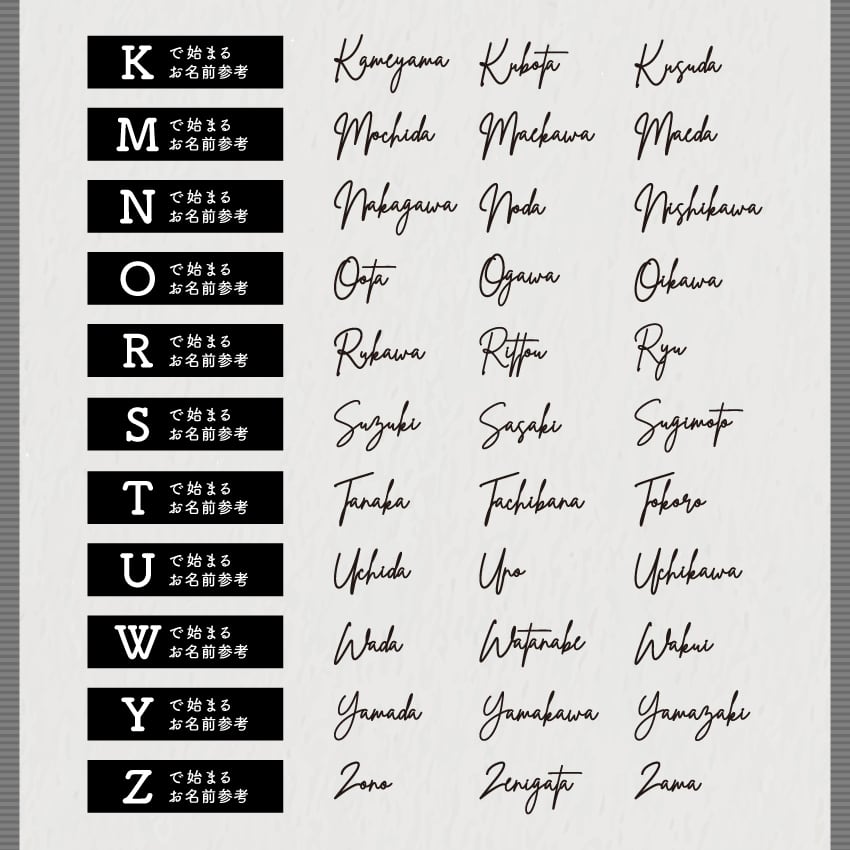 K で始まる
お名前参考
Kameyama Kubota Kusuda
M で始まる
お名前参考
Mochida Maekawa Maeda
N で始まる
お名前参考
Nakagawa Noda Nishikawa
O で始まる
お名前参考
Oota Ogawa Oikawa
R で始まる
お名前参考
Rukawa Rittou Ryu
S で始まる
お名前参考
Suzuki Sasaki Sugimoto
T で始まる
お名前参考
Tanaka Tachibana Tokoro
U で始まる
お名前参考
Uchida Uno Uchikawa
W で始まる
お名前参考
Wada Watanabe Wakui
Y で始まる
お名前参考
Yamada Yamakawa Yamazaki
Z で始まる
お名前参考
Zono Zenigata Zama